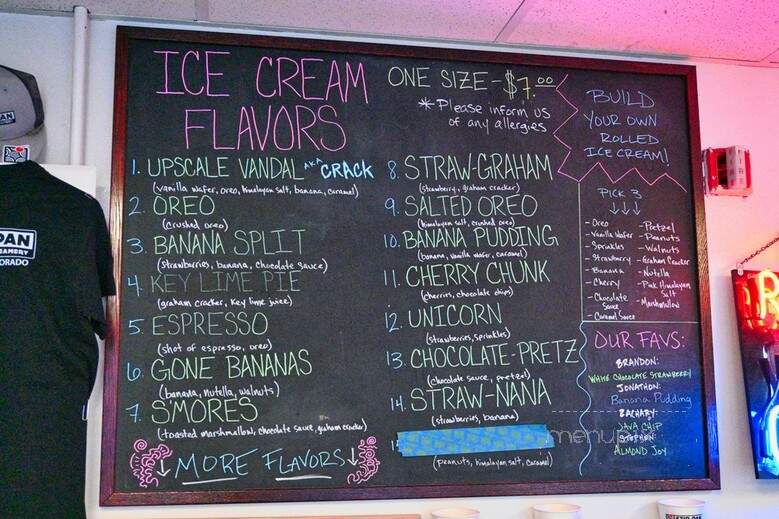 ICE CREAM
FLAVORS
ONE SIZE - $7.00
* Please inform us
of any allergies
1. UPSCALE VANDAL AKA CRACK
(vanilla wafer, oreo, himalayan salt, banana, caramel)
2. OREO
(crushed oreo)
3. BANANA SPLIT
(strawberries, banana, chocolate sauce)
4. KEY LIME PIE
(graham cracker, key lime juice)
5. ESPRESSO
(shot of espresso, oreo)
6. GONE BANANAS
(banana, nutella, walnuts)
7. S'MORES
(toasted marshmallow, chocolate sauce, graham cracker)
↓ MORE FLAVORS ↓
8. STRAW-GRAHAM
(strawberry, graham cracker)
9. SALTED OREO
(himalayan salt, crushed oreo)
10. BANANA PUDDING
(banana, vanilla wafer, caramel)
11. CHERRY CHUNK
(cherries, chocolate chips)
12. UNICORN
(strawberries, sprinkles)
13. CHOCOLATE-PRETZ
(chocolate sauce, pretzel)
14. STRAW-NANA
(strawberries, banana)
(peanuts, himalayan salt, caramel)
BUILD
YOUR OWN
ROLLED
ICE CREAM!
PICK 3
↓↓↓
- Oreo
- Vanilla Wafer
- Sprinkles
- Strawberry
- Banana
- Cherry
- Chocolate
Sauce
- Caramel Sauce
- Pretzel
- Peanuts
- Walnuts
- Graham Cracker
- Nutella
- Pink Himalayan
Salt
- Marshmallow
OUR FAVS:
BRANDON:
WHITE CHOCOLATE STRAWBERRY
JONATHON:
Banana Pudding
ZACHARY:
JAVA CHIP
STEPHEN:
ALMOND JOY
DAN
EAMERY
ORADO